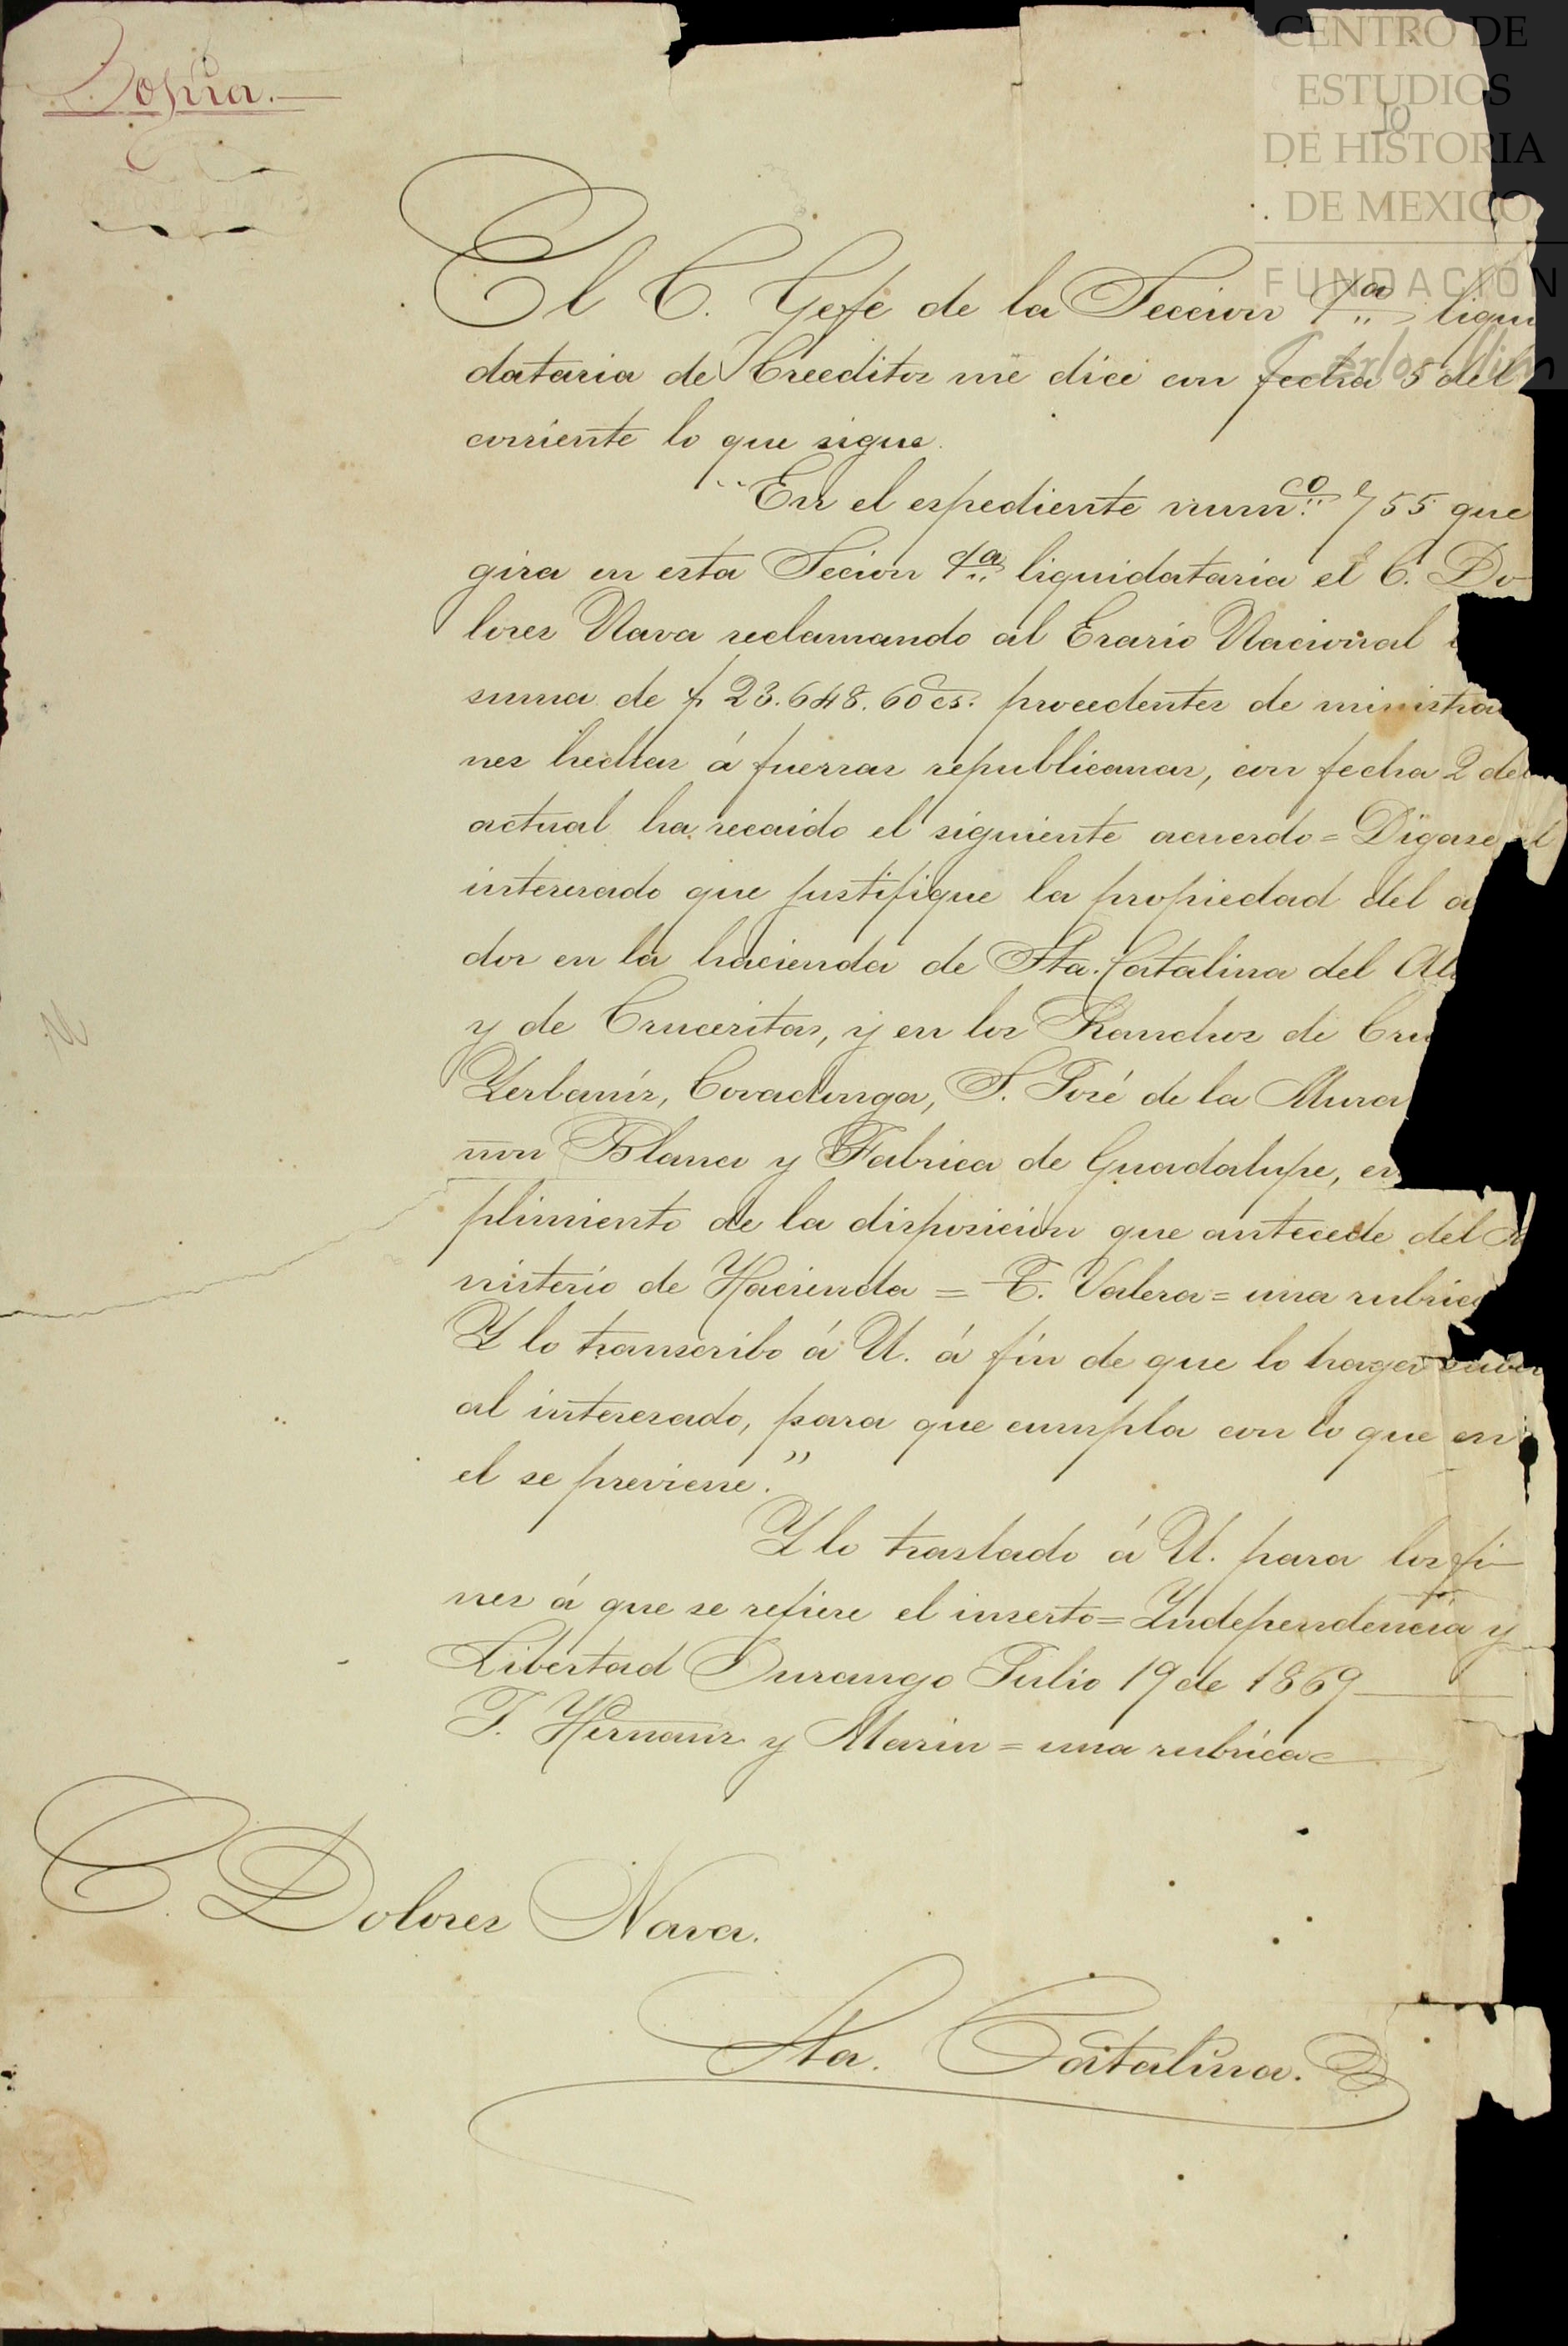 Copia.
CENTRO DE
ESTUDIOS
DE HISTORIA
DE MEXICO
FUNDACIÓN
Carlos Slim
10
El C. Gefe de la Seccion 4ª liqui
dataria de Creeditos me dice con fecha 5 del
corriente lo que sigue.
"En el espediente numº 755 que
gira en esta Secion 4ª liquidataria el C. Do
lores Nava reclamando al Erario Nacional
suma de $ 23.648.60 cs. procedentes de ministra
nes hechas á fuerzas republicanas, con fecha 2 del
actual ha recaido el siguiente acuerdo = Digase al
interesado que justifique la propiedad del
dor en la hacienda de Sta. Catalina del
y de Crucesitas, y en los Ranchos de
Yerbanis, Covadonga, S. José de la
Blanca y Fabrica de Guadalupe,
plimiento de la disposicion que antecede del
nisterio de Hacienda = T. Valera = una rubrica
Y lo transcribo á U. á fin de que lo haga saber
al interesado, para que cumpla con lo que en
el se previene."
Y lo traslado á U. para los fi
nes á que se refiere el inserto = Independencia y
Libertad Durango Julio 19 de 1869
T. Hernanz y Marin = una rubrica
C. Dolores Nava.
Sta. Catalina.